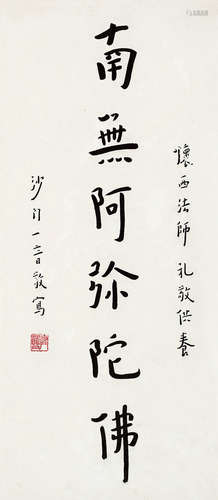 懷西法師 礼敬供養
南無阿弥陀佛
沙门一音敬寫